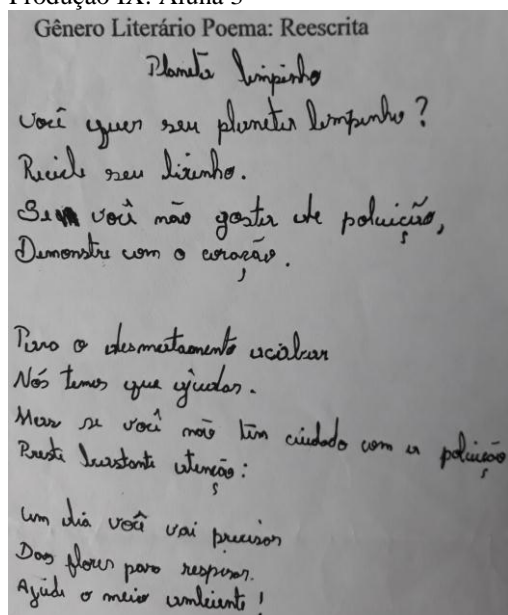 Produção IX: Aluna 3
Gênero Literário Poema: Reescrita
Planeta limpinho
Você quer seu planeta limpinho?
Recicle seu lixinho.
Se você não gosta de poluição,
Demonstre com o coração.
Para o desmatamento acabar
Nós temos que ajudar.
Mas se você não tem cuidado com a poluição
Preste bastante atenção:
um dia você vai precisar
Das flores para respirar.
Ajude o meio ambiente!